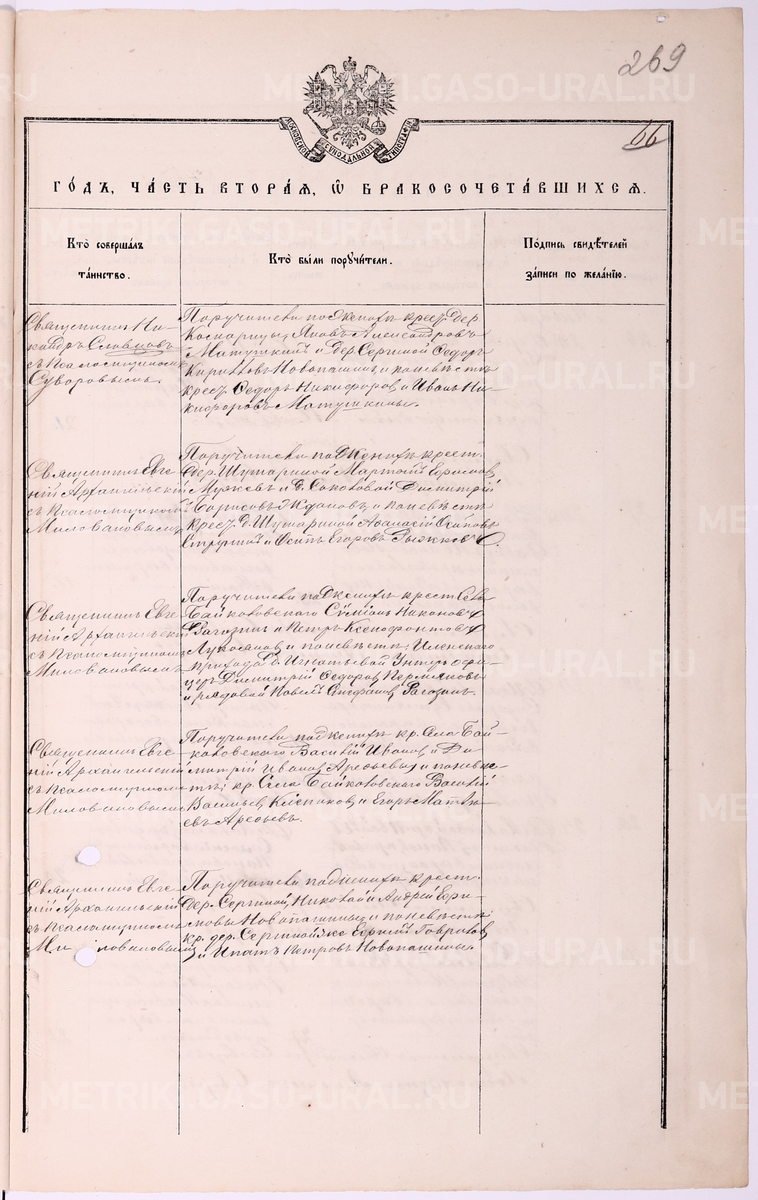 269
66
МОСКОВСКОЙ СѴНОДАЛЬНОЙ ТИПОГРАФІИ
ГО́ДЪ, ЧА́СТЬ ВТОРА́Я, Ѿ БРАКОСОЧЕТА́ВШИХСЯ.
Кто̀ соверша́лъ
та́инство.
Кто̀ бы́ли порꙋчи́тели.
По́дпись свидѣ́телей
за́писи по жела́нїю.
Священникъ Ни-
кандръ Словцовъ
съ псаломщикомъ
Суворовымъ.
Поручители по женихѣ крест. дер.
Яковъ Александровъ
Матушкинъ и дер. Сергиной Ѳедоръ
Кириловъ Новопашинъ и по невѣстѣ
крес. Ѳедоръ Никифоровъ и Иванъ Ни-
кифоровъ Матушкины.
Священникъ Евге-
ній Архангельскій
съ псаломщикомъ
Миловановымъ
Поручители по женихѣ крест.
дер. Борисовъ
и д. Соколовой Димитрій
Борисовъ Ждановъ, и по невѣстѣ
крес. д. Аѳанасій
и Осипъ Егоровъ Рыжковъ.
Священникъ Евге-
ній Архангельскій
съ псаломщикомъ
Миловановымъ
Поручители по женихѣ крест. Села
Байкаловскаго Симіонъ Никоновъ
Рагозинъ и Петръ Ксенофонтовъ
Лукояновъ и по невѣстѣ:
прихода д. Игнатьевой Унтеръ офи-
церъ Димитрій Ѳедоровъ Пермяковъ
и рядовой Стефановъ Рагозинъ.
Священникъ Евге-
ній Архангельскій
съ псаломщикомъ
Миловановымъ
Поручители по женихѣ кр. Села Бай-
каловскаго Василій Ивановъ и Ди-
митрій Ивановъ Арефьевы и по невѣс-
тѣ: кр. Села Байкаловскаго Василій
Васильевъ Клепиковъ и Егоръ Матвѣ-
евъ Арефьевъ.
Священникъ Евге-
ній Архангельскій
съ псаломщикомъ
Миловановымъ
Поручители по женихѣ крест.
дер. Сергиной, Николай и Андрей Ефи-
мовы Новопашины и по невѣстѣ:
кр. дер. Сергиной же Гавриловъ
и Ипатъ Петровъ Новопашины.
METRIKI.GASO-URAL.RU